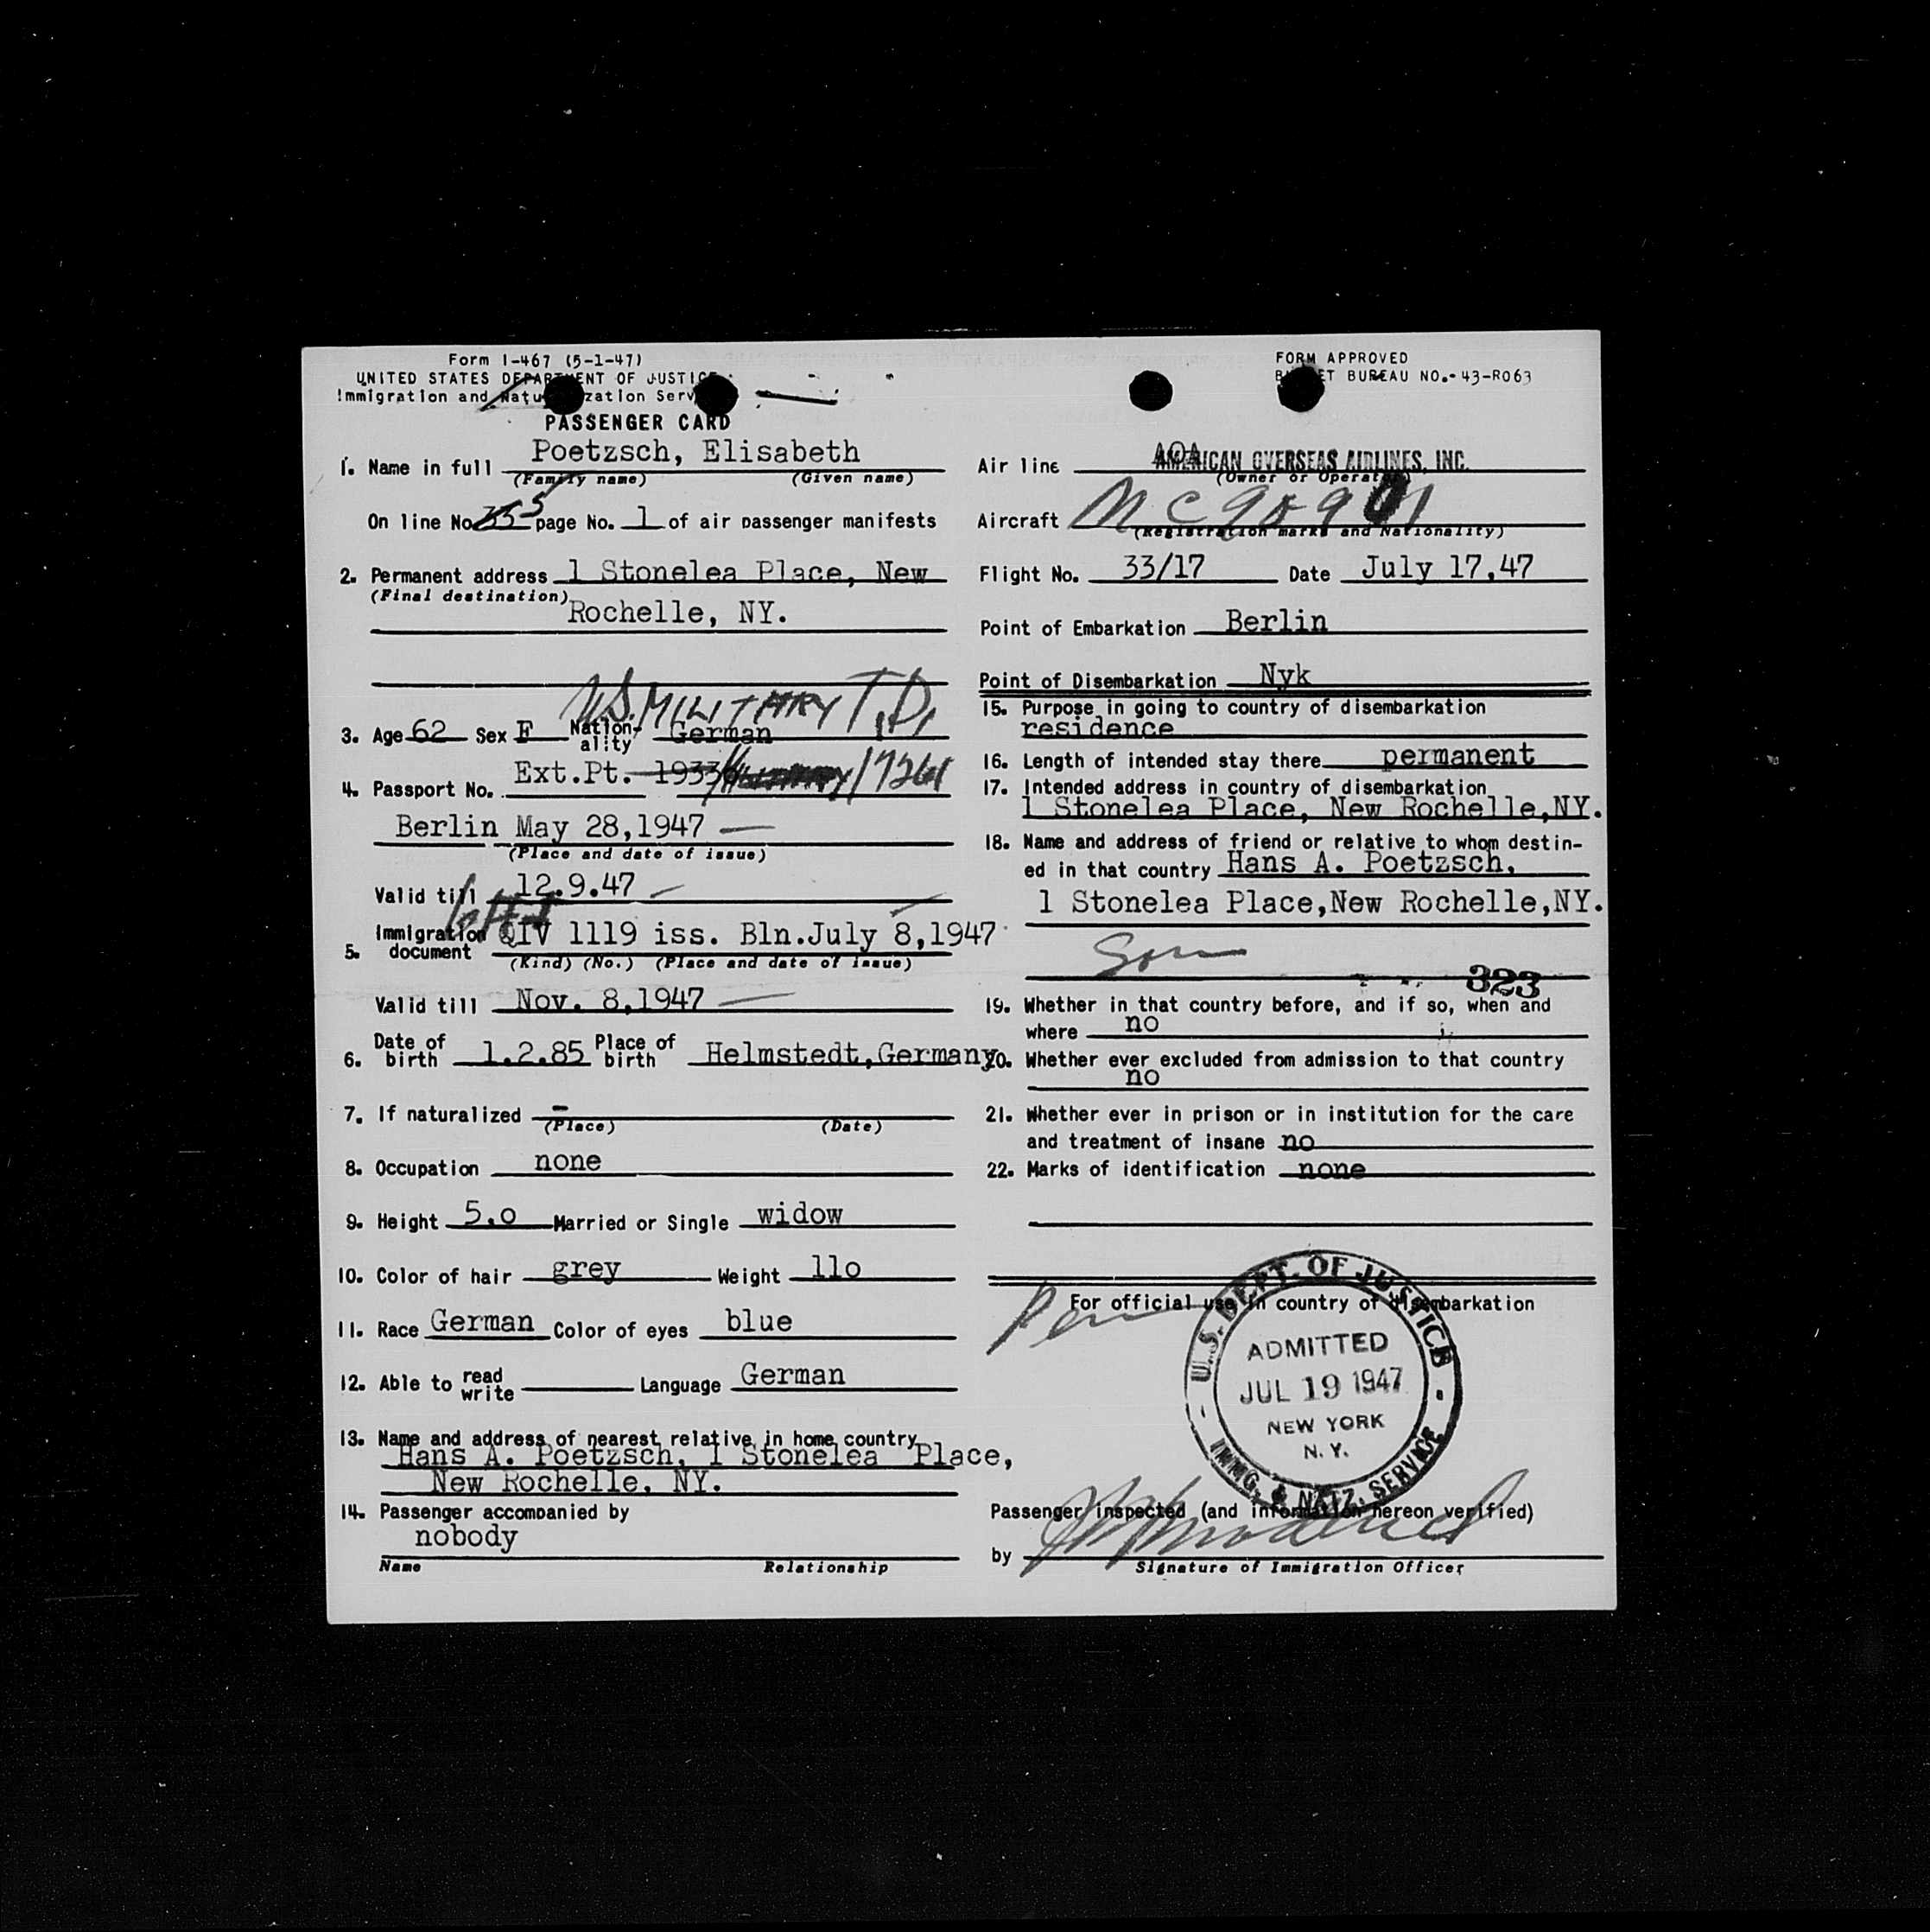 Form I-467 (5-1-47)
UNITED STATES DEPARTMENT OF JUSTICE
Immigration and Naturalization Serv
PASSENGER CARD
1. Name in full Poetzsch, Elisabeth
(Family name) (Given name)
On line No. 5 page No. 1 of air passenger manifests
2. Permanent address 1 Stonelea Place, New
(Final destination)
Rochelle, NY.
U.S. MILITARY T.D.
3. Age 62 Sex F Nation-ality German
4. Passport No. Ext.Pt. 17261
Berlin May 28,1947
(Place and date of issue)
Valid till 12.9.47
5. Immigration document QIV 1119 iss. Bln.July 8,1947
(Kind) (No.) (Place and date of issue)
Valid till Nov. 8,1947
6. Date of birth 1.2.85 Place of birth Helmstedt,Germany
7. If naturalized -
(Place) (Date)
8. Occupation none
9. Height 5.o Married or Single widow
10. Color of hair grey Weight 11o
11. Race German Color of eyes blue
12. Able to read write Language German
13. Name and address of nearest relative in home country
Hans A. Poetzsch, 1 Stonelea Place,
New Rochelle, NY.
14. Passenger accompanied by
nobody
Name Relationship
FORM APPROVED
BUDGET BUREAU NO.-43-R063
Air line AOA AMERICAN OVERSEAS AIRLINES, INC.
(Owner or Operator)
Aircraft
(Registration marks and Nationality)
Flight No. 33/17 Date July 17,47
Point of Embarkation Berlin
Point of Disembarkation Nyk
15. Purpose in going to country of disembarkation
residence
16. Length of intended stay there permanent
17. Intended address in country of disembarkation
1 Stonelea Place, New Rochelle,NY.
18. Name and address of friend or relative to whom destin-
ed in that country Hans A. Poetzsch,
1 Stonelea Place,New Rochelle,NY.
Son
323
19. Whether in that country before, and if so, when and
where no
20. Whether ever excluded from admission to that country
no
21. Whether ever in prison or in institution for the care
and treatment of insane no
22. Marks of identification none
For official use in country of disembarkation
U.S. DEPT. OF JUSTICE
ADMITTED
JUL 19 1947
NEW YORK
N. Y.
IMMG. & NATZ. SERVICE
Passenger inspected (and information hereon verified)
by
Signature of Immigration Officer